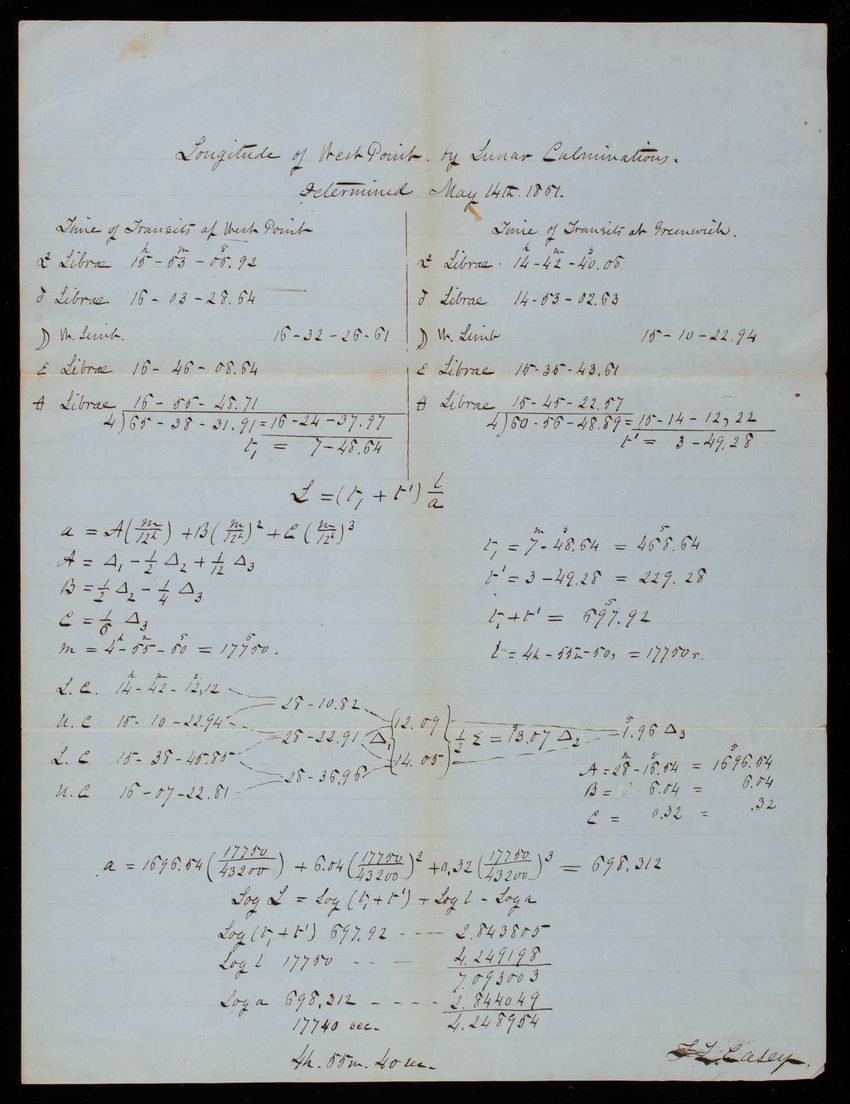 Longitude of West Point. by Lunar Culminations.
Determined May 14th. 1851.
Time of Transits at West Point
α² Librae 15ʰ - 53ᵐ - 05ˢ.92
δ Librae 16 - 03 - 28.64
☽ W. Limb. 16 - 32 - 26 - 61
ε Librae 16 - 46 - 08.64
θ Librae 16 - 55 - 48.71
4)65 - 38 - 31.91 = 16 - 24 - 37.97
t, = 7 - 48.64
Time of Transits at Greenwich.
α² Librae. 14ʰ - 42ᵐ - 40ˢ.05
δ Librae 14 - 53 - 02.63
☽ W. Limb 15 - 10 - 22.94
ε Librae 15 - 35 - 43.61
θ Librae 15 - 45 - 22.57
4)60 - 56 - 48.89 = 15 - 14 - 12,22
t' = 3 - 49.28
L = (t, + t') l/a
a = A(m/12ʰ) + B(m/12ʰ)² + C(m/12ʰ)³
A = Δ₁ - ½ Δ₂ + 1/12 Δ₃
B = ½ Δ₂ - ¼ Δ₃
C = 1/6 Δ₃
m = 4ʰ - 55ᵐ - 50ˢ = 17750ˢ.
t, = 7ᵐ - 48ˢ.64 = 468ˢ.64
t' = 3 - 49.28 = 229.28
t, + t' = 697ˢ.92
l = 4h - 55m - 50s = 17750s.
L. C. 14ʰ - 42ᵐ - 12ˢ,12
28 - 10.82
U. C 15 - 10 - 22.94
12.09
28 - 22.91 Δ₁ ½ Σ = 13ˢ.07 Δ₂ 1ˢ.96 Δ₃
L. C 15 - 38 - 45.85
14.05
28 - 36.96
U. C 16 - 07 - 22.81
A = 28ᵐ - 16ˢ.54 = 1696ˢ.54
B = 6.04 = 6.04
C = 0.32 = .32
a = 1696.54(17750/43200) + 6.04(17750/43200)² + 0,32(17750/43200)³ = 698.312
Log L = Log (t, + t') + Log l - Log a
Log (t, + t') 697.92 - - - - 2.843805
Log l 17750 - - - 4.249198
7.093003
Log a 698.312 - - - - 2.844049
17740 sec. 4.248954
4h. 55m. 40 sec.
T. L. Casey.